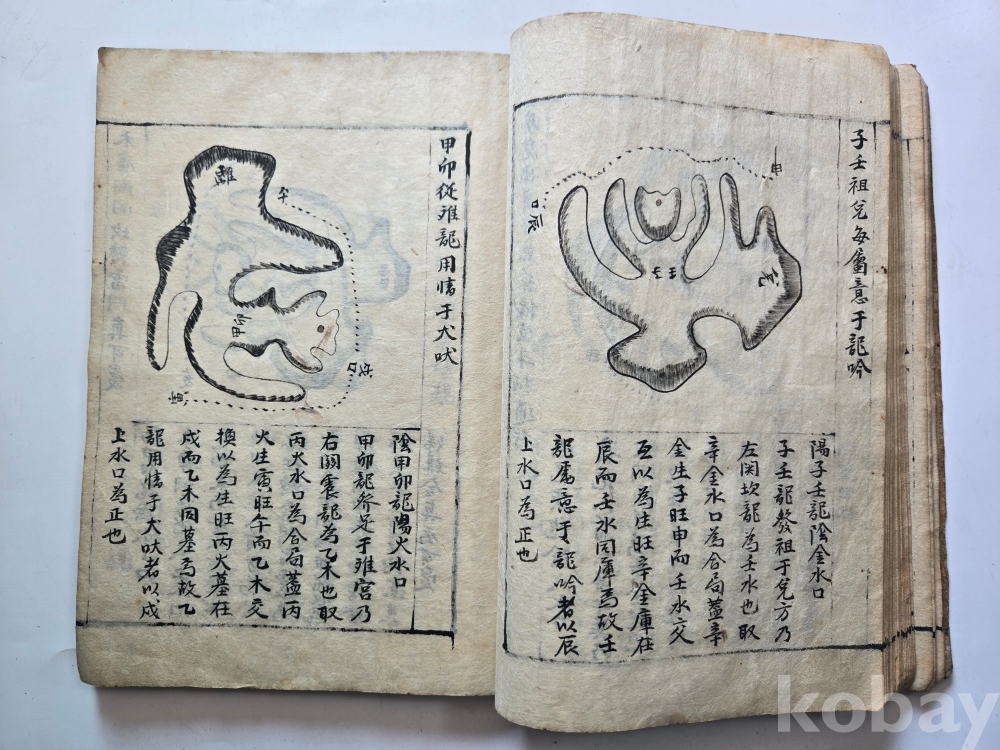 子壬祖兌每屬意于龍吟
申
口辰
壬子
兌
陽子壬龍陰金水口
子壬龍發祖于兌方乃
左関坎龍為壬水也取
辛金水口為合局蓋辛
金生子旺申而壬水交
互以為生旺辛金庫在
辰而壬水同庫焉故壬
龍屬意于龍吟者以辰
上水口為正也
甲卯從龍用情于犬吠
離
午
戌口
陰甲卯龍陽火水口
甲卯龍發足于宮乃
右関震龍為乙木也取
丙火水口為合局蓋丙
火生寅旺午而乙木交
換以為生旺丙火墓在
戌而乙木同墓焉故乙
龍用情于犬吠者以戌
上水口為正也
kobay